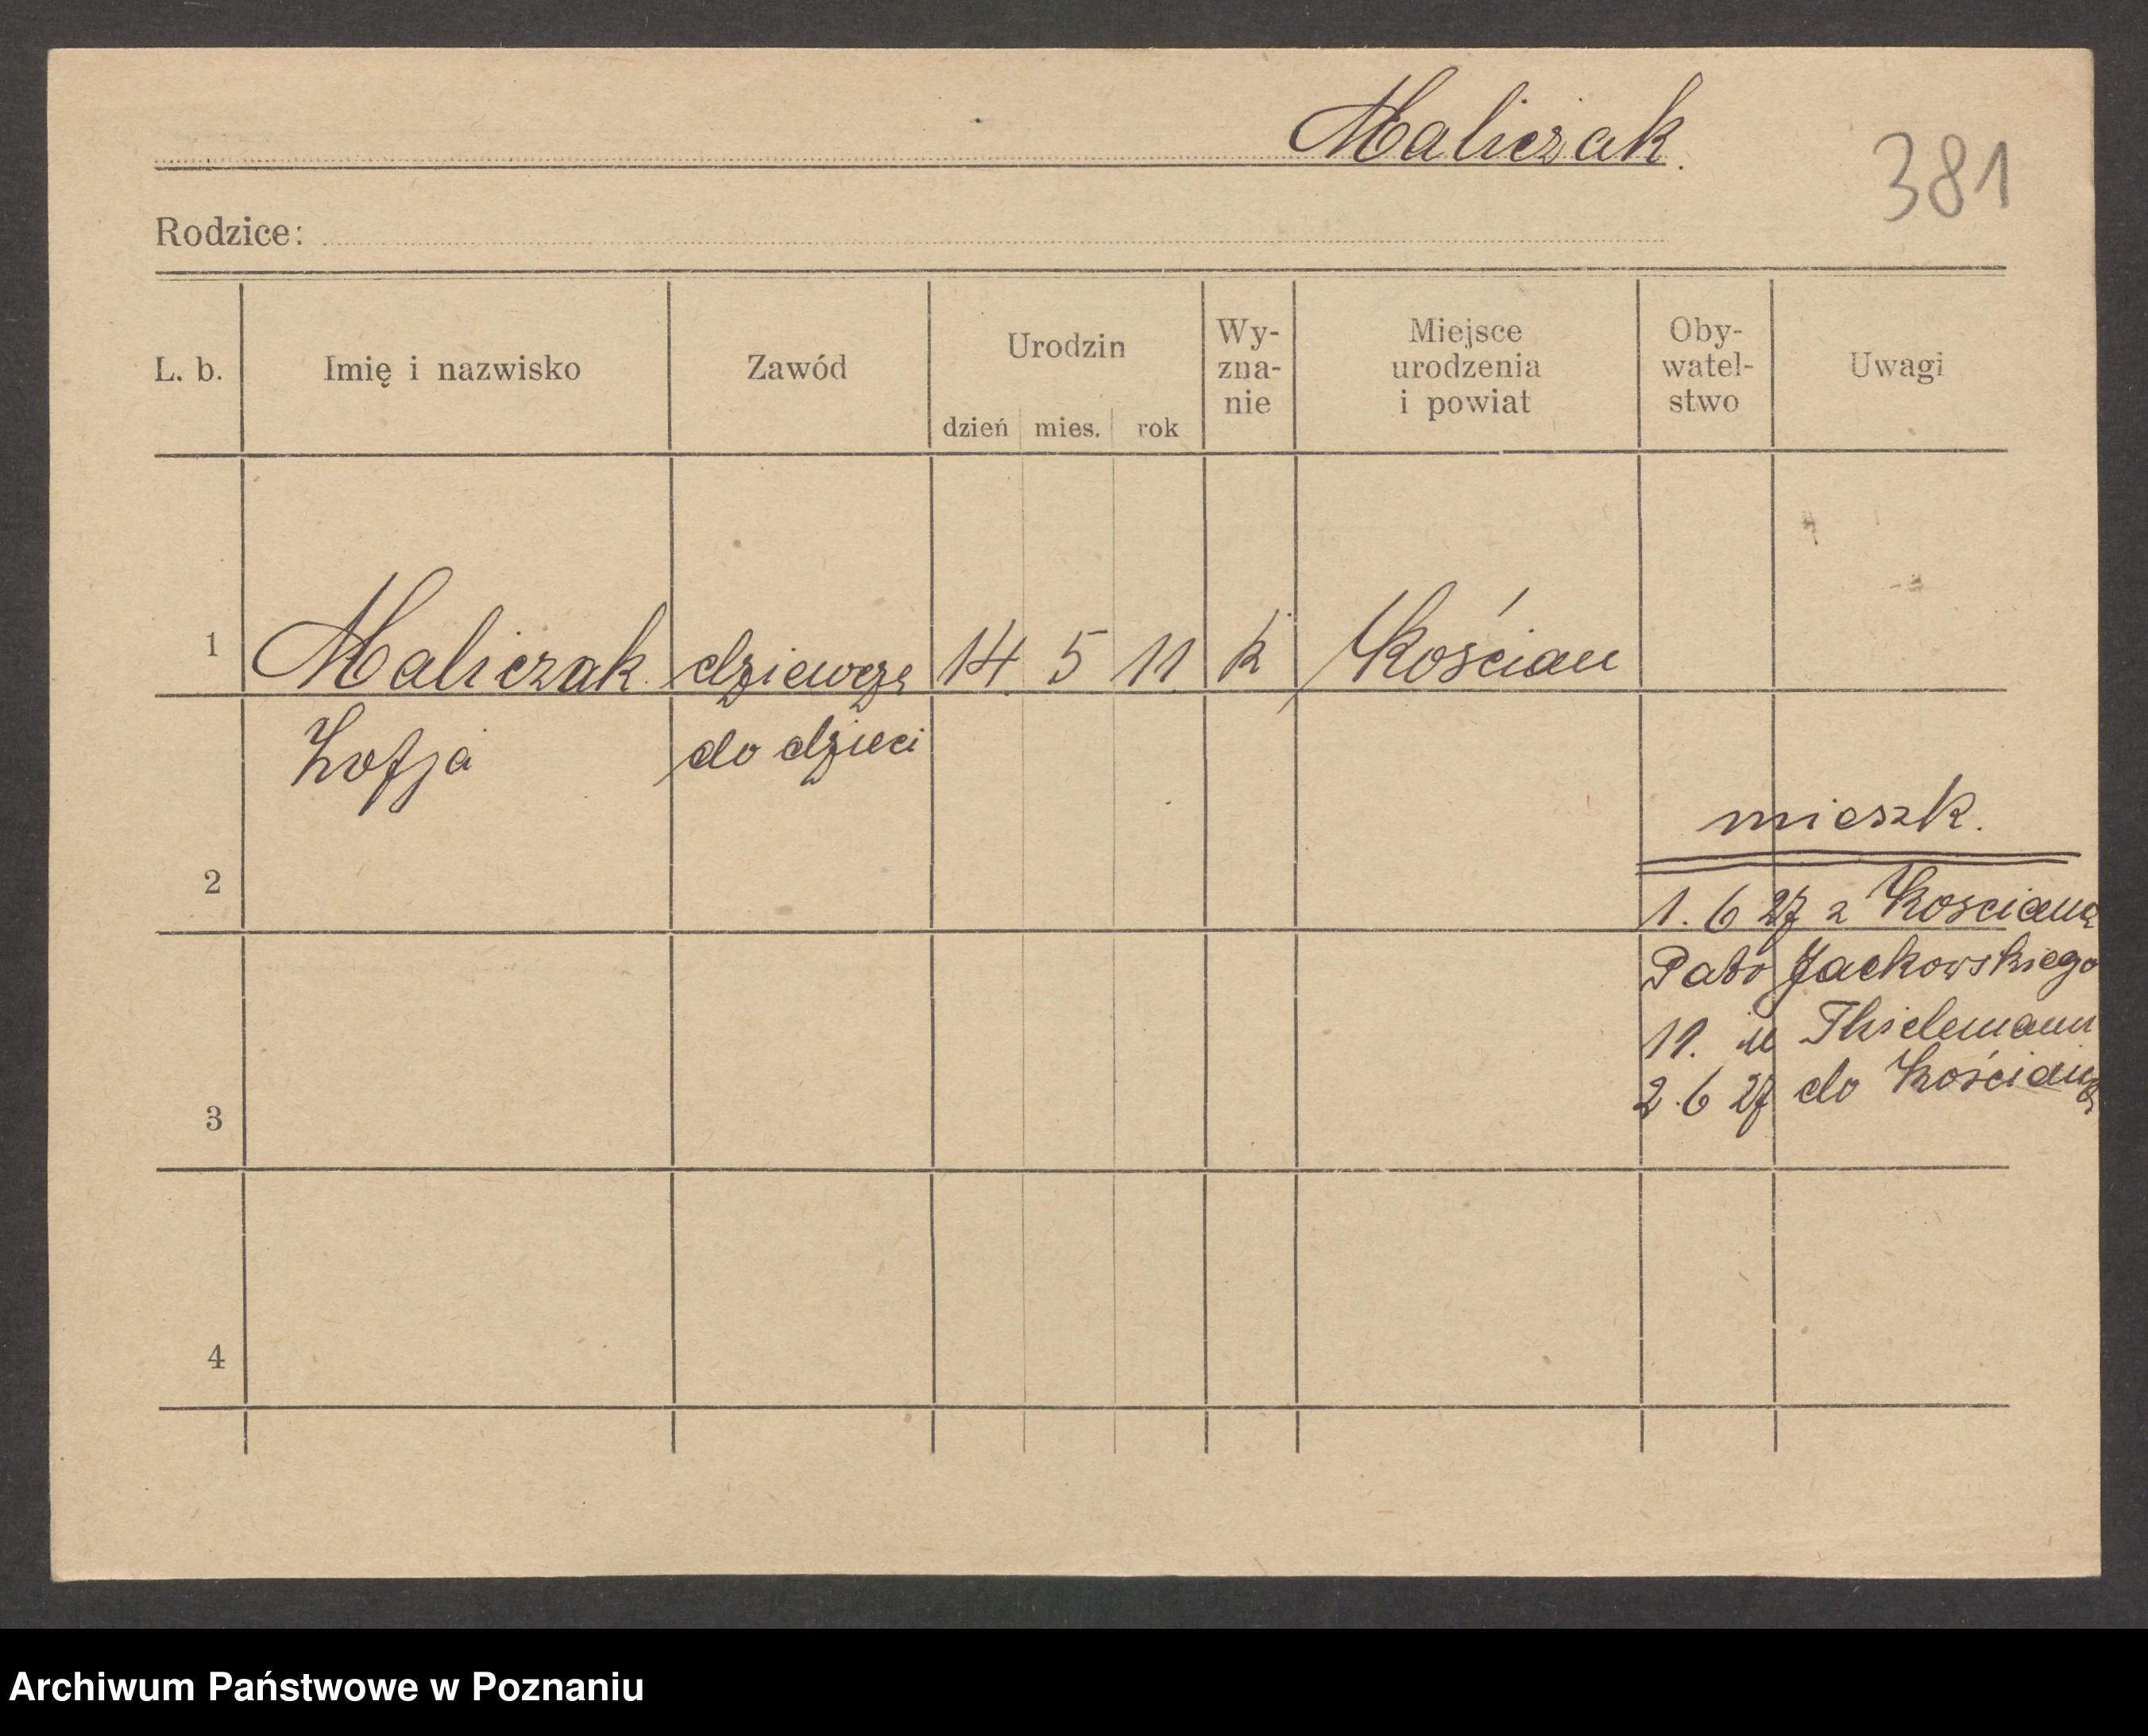 Maliczak.
381
Rodzice:
L. b.
Imię i nazwisko
Zawód
Urodzin
dzień mies. rok
Wy-
zna-
nie
Miejsce
urodzenia
i powiat
Oby-
watel-
stwo
Uwagi
1 Maliczak dziewczę 14 5 11 k Kościan
Zofja do dzieci
mieszk.
2
1. 6 27 z Kosciana
Jackowskiego
11. u Thielemann
2. 6 27 do Kościana
3
4
Archiwum Państwowe w Poznaniu